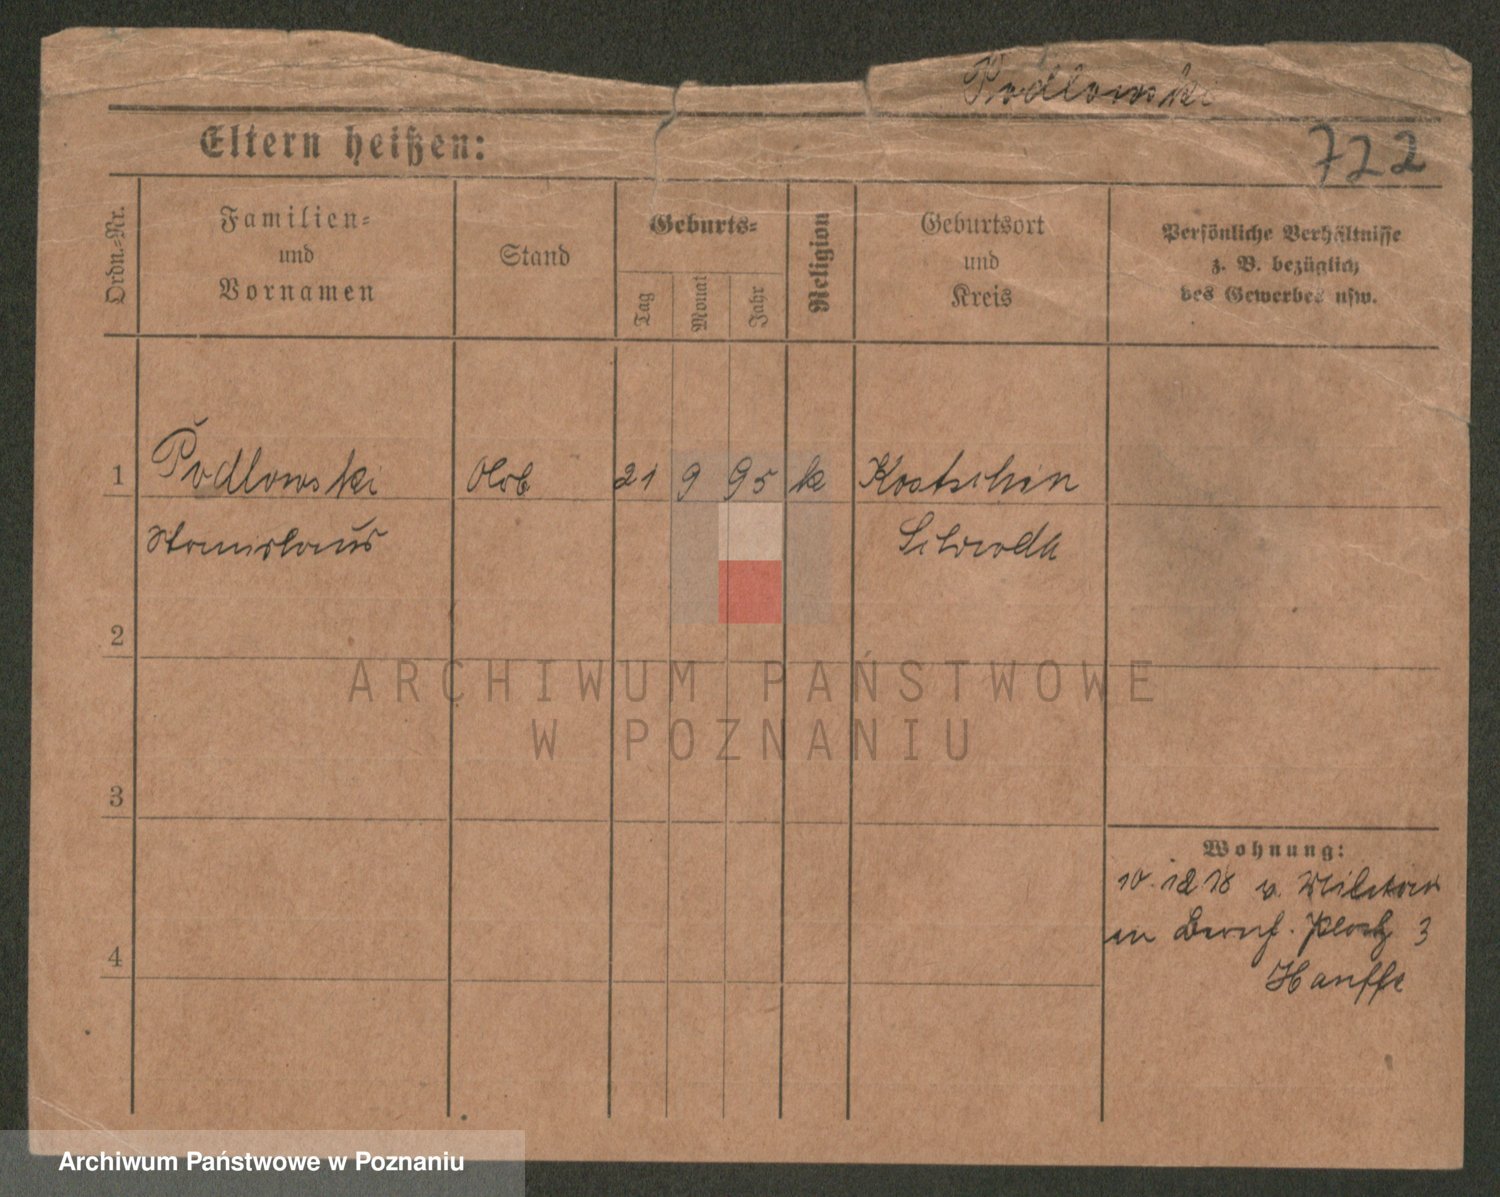 Podlowski
722
Eltern heißen:
Ordn.-Nr.
Familien-
und
Vornamen
Stand
Geburts-
Tag
Monat
Jahr
Religion
Geburtsort
und
Kreis
Persönliche Verhältnisse
z. B. bezüglich
des Gewerbes usw.
1 Podlowski 21 9 95 k Kostschin
Stanislaus Schroda
2
3
4
Wohnung:
10.12 18 v. Militär
in 3
ARCHIWUM PAŃSTWOWE
W POZNANIU
Archiwum Państwowe w Poznaniu